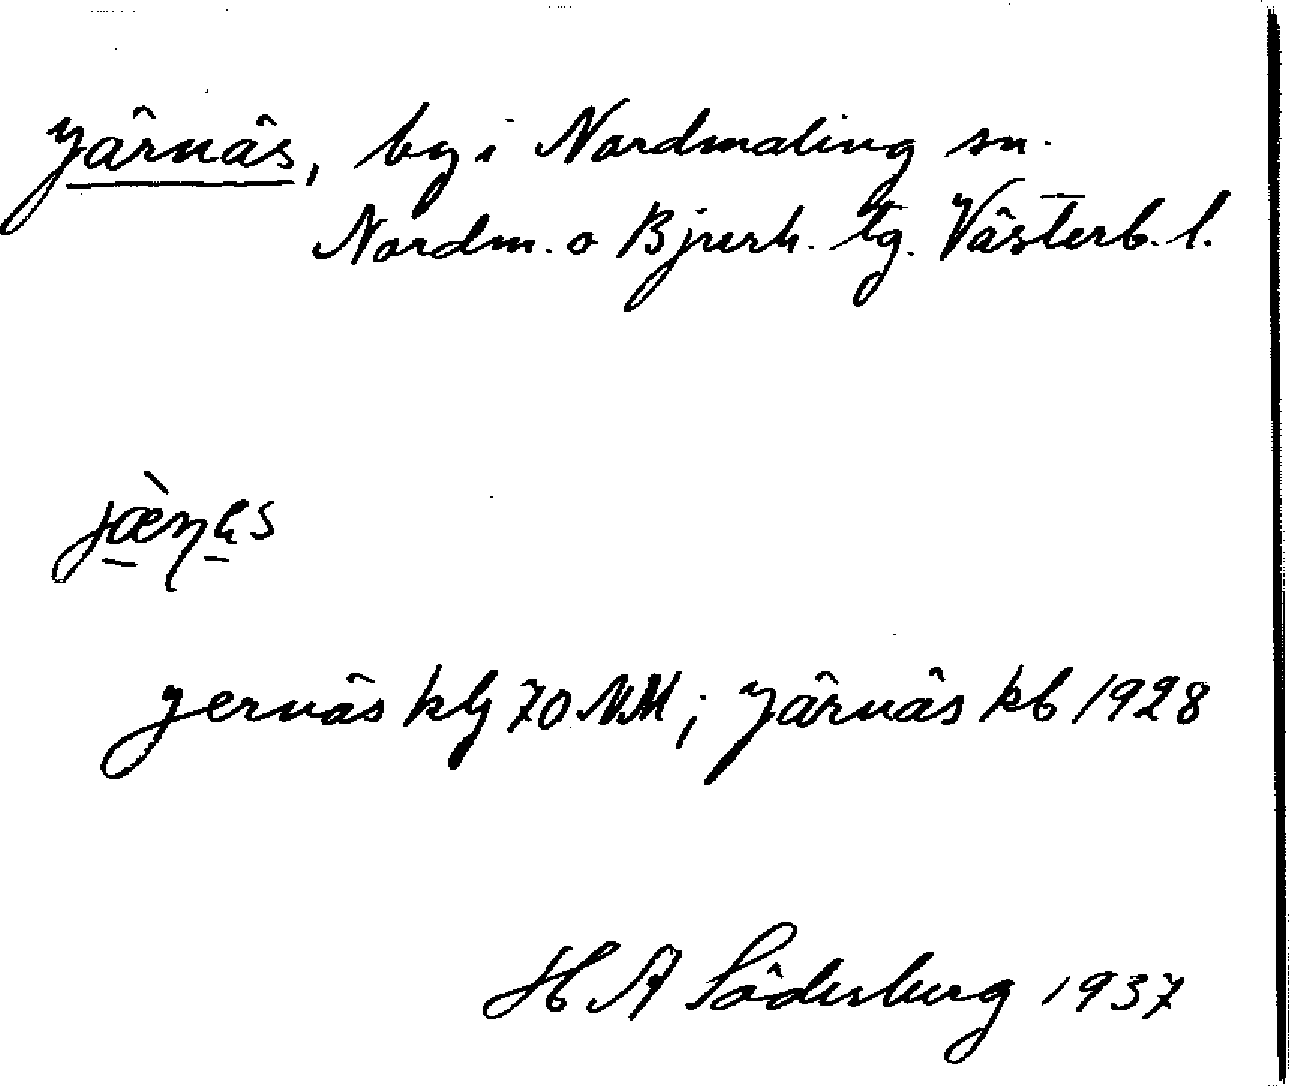 Järnäs, by i Nordmaling sn.
Nordm. o Bjurh. tg. Västerb. l.
Jernäs klg 70 NM; Järnäs kb 1928
H A Söderberg 1937